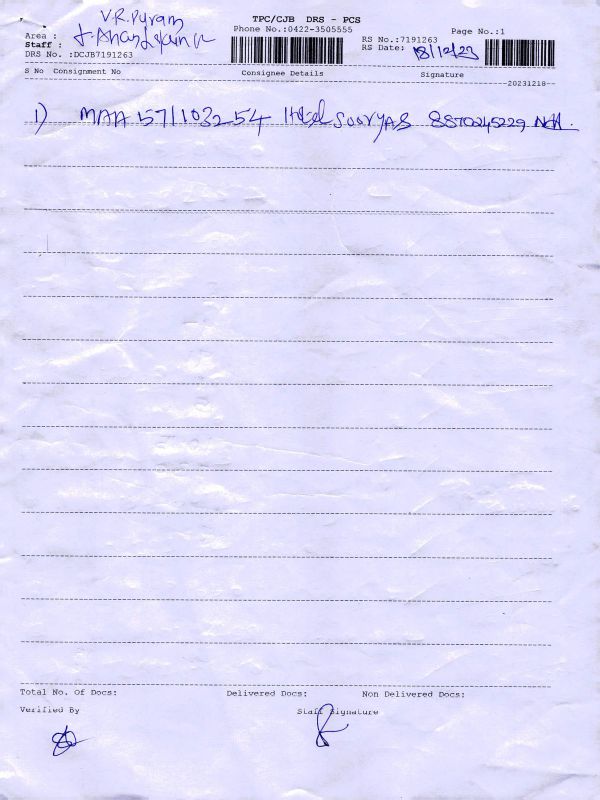 TPC/CJB DRS - PCS
V.R. Puram
Area :
Phone No.:0422-3505555
RS No.:7191263
Page No.:1
Staff :
RS Date: 18/12/23
DRS No. :DCJB7191263
S No Consignment No Consignee Details Signature
20231218
1) MAA 571103254 Hotel SOORYAS 8870245229
Total No. Of Docs: Delivered Docs: Non Delivered Docs:
Verified By Staff Signature